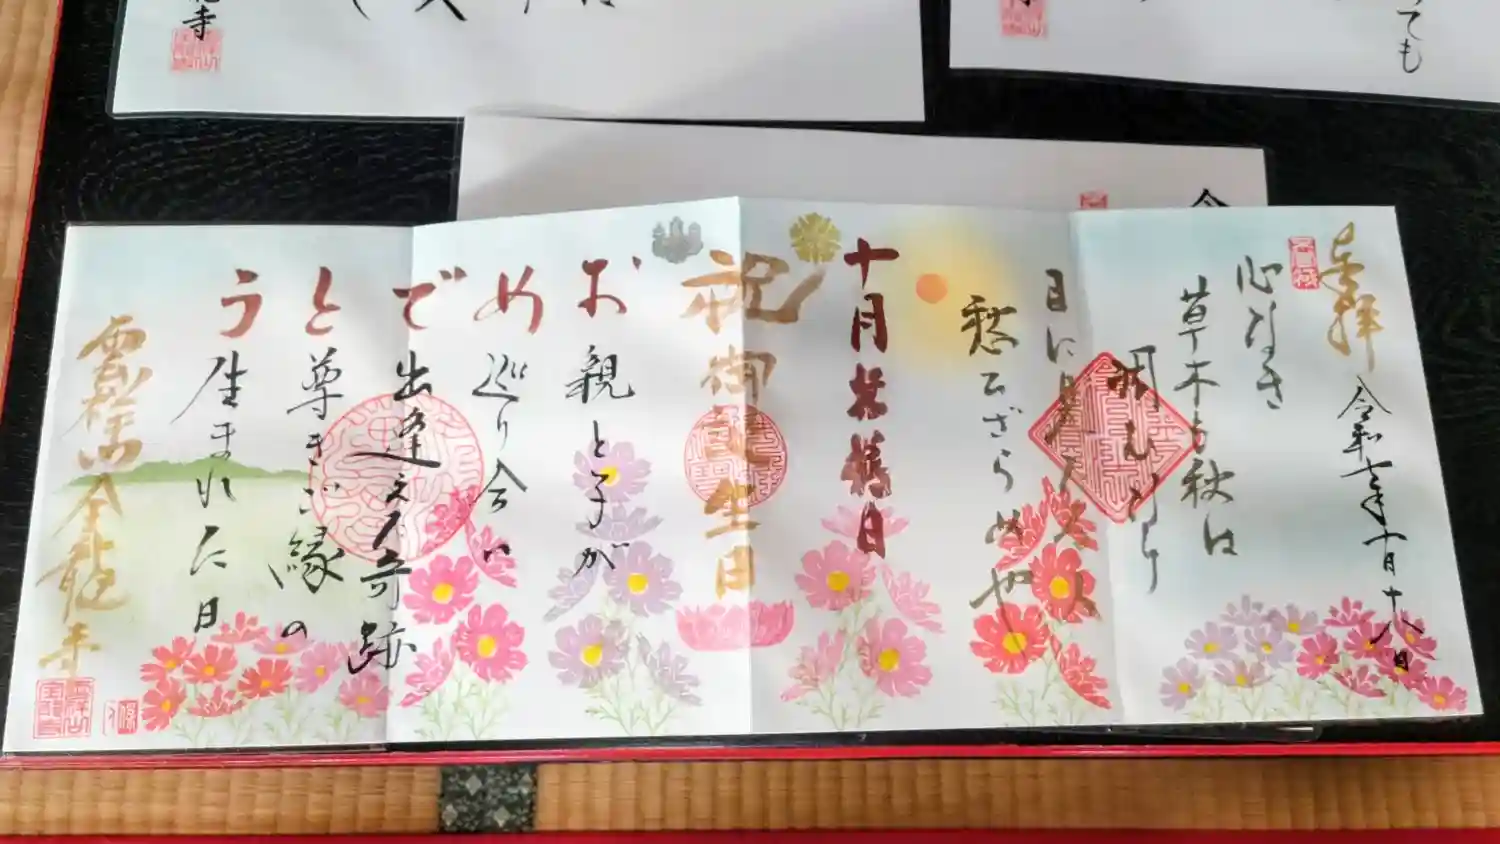 奉拝
令和七年十月十八日
心なき
草木も秋は
凋むなり
目に見たる人
愁ざらめや
十月 様日
祝御誕生日
おめでとう
親と子が
巡り会い
出逢えた奇跡
尊きご縁の
生まれた日
全龍寺
ても
寺
令